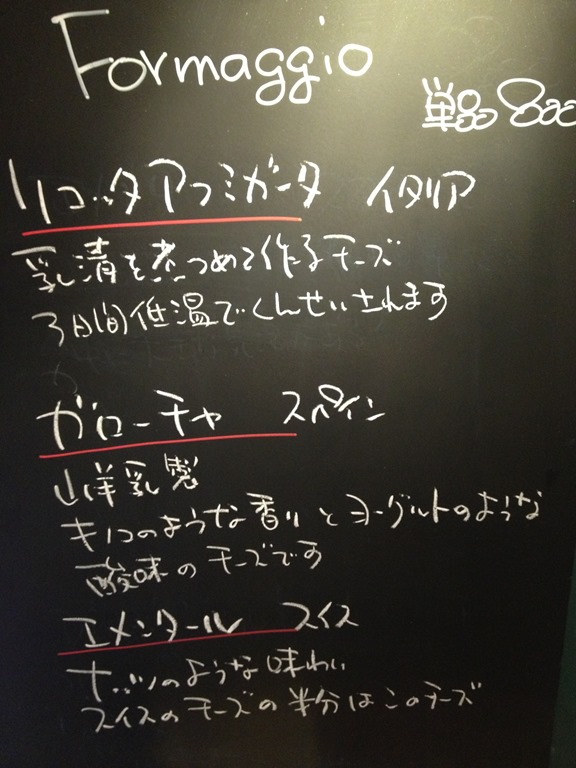 Formaggio
単品 800
リコッタアフミガータ イタリア
乳清を煮つめて作るチーズ
3日間低温でくんせいされます
ガローチャ スペイン
山羊乳製
キノコのような香りとヨーグルトのような
酸味のチーズです
エメンタール スイス
ナッツのような味わい
スイスのチーズの半分はこのチーズ